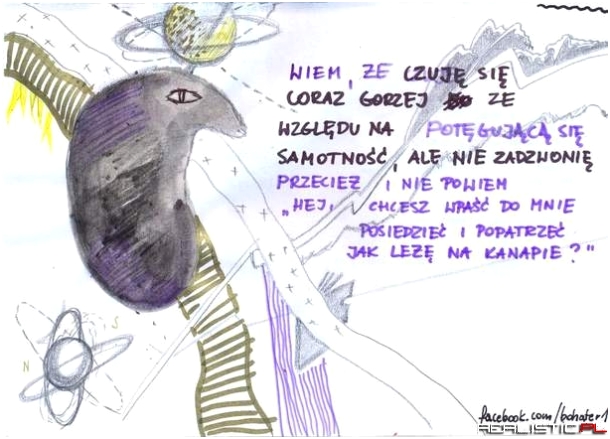 WIEM, ŻE CZUJĘ SIĘ
CORAZ GORZEJ ZE
WZGLĘDU NA POTĘGUJĄCĄ SIĘ
SAMOTNOŚĆ, ALE NIE ZADZWONIĘ
PRZECIEŻ I NIE POWIEM
„HEJ, CHCESZ WPAŚĆ DO MNIE
POSIEDZIEĆ I POPATRZEĆ
JAK LEŻĘ NA KANAPIE?"
N
S
facebook.com/bohater1
REALISTIC.PL